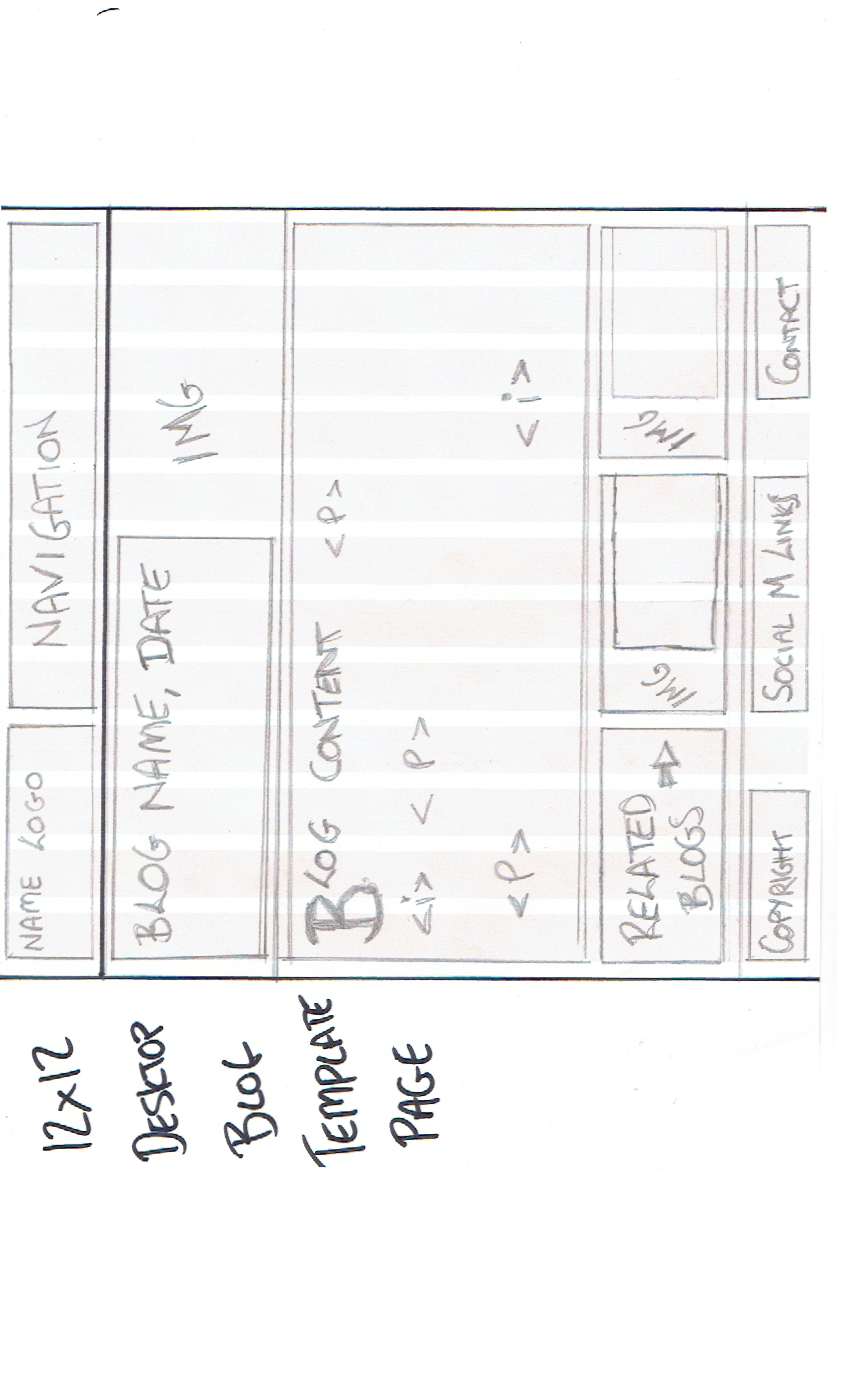 12x12
DESKTOP
BLOG
TEMPLATE
PAGE
NAME LOGO
NAVIGATION
BLOG NAME, DATE
IMG
BLOG CONTENT <P>
<i> < P>
<P> <i>
RELATED
BLOGS
IMG
IMG
COPYRIGHT
SOCIAL M LINKS
CONTACT